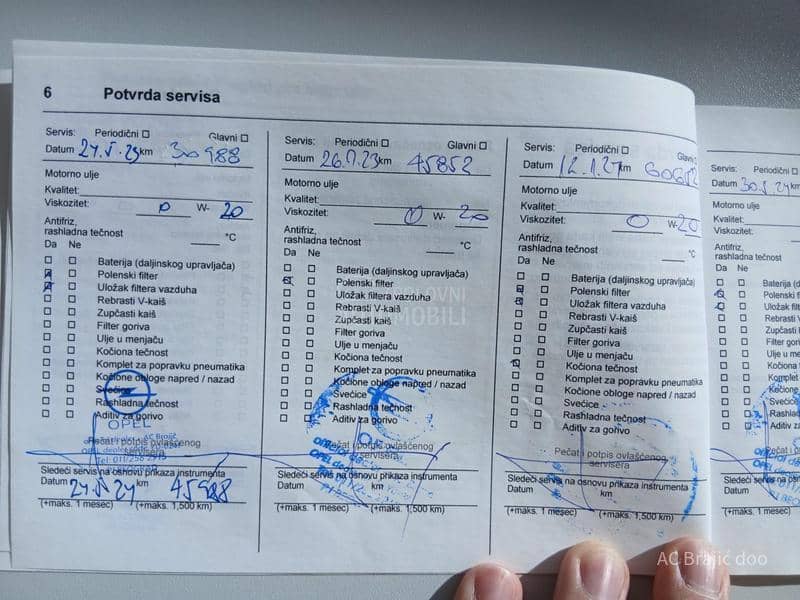 6 Potvrda servisa
Servis: Periodični □ Glavni □
Datum 24.V.23 km 30988
Motorno ulje
Kvalitet:
Viskozitet: 0 W- 20
Antifriz,
rashladna tečnost °C
Da Ne
Baterija (daljinskog upravljača)
Polenski filter
Uložak filtera vazduha
Rebrasti V-kaiš
Zupčasti kaiš
Filter goriva
Ulje u menjaču
Kočiona tečnost
Komplet za popravku pneumatika
Kočione obloge napred / nazad
Svećice
Rashladna tečnost
Aditiv za gorivo
OPEL
Pečat i potpis ovlašćenog
servisera
Sledeći servis na osnovu prikaza instrumenta
Datum 24.V.24 km 45988
(+maks. 1 mesec) (+maks. 1,500 km)
Servis: Periodični □ Glavni □
Datum 26.7.23 km 45852
Motorno ulje
Kvalitet:
Viskozitet: 0 W- 20
Antifriz,
rashladna tečnost °C
Da Ne
Baterija (daljinskog upravljača)
Polenski filter
Uložak filtera vazduha
Rebrasti V-kaiš
Zupčasti kaiš
Filter goriva
Ulje u menjaču
Kočiona tečnost
Komplet za popravku pneumatika
Kočione obloge napred / nazad
Svećice
Rashladna tečnost
Aditiv za gorivo
Pečat i potpis ovlašćenog
servisera
Sledeći servis na osnovu prikaza instrumenta
Datum km
(+maks. 1 mesec) (+maks. 1,500 km)
Servis: Periodični □ Glavni
Datum 12.1.24 km
Motorno ulje
Kvalitet:
Viskozitet: 0 W- 20
Antifriz,
rashladna tečnost °C
Da Ne
Baterija (daljinskog upravljača)
Polenski filter
Uložak filtera vazduha
Rebrasti V-kaiš
Zupčasti kaiš
Filter goriva
Ulje u menjaču
Kočiona tečnost
Komplet za popravku pneumatika
Kočione obloge napred / nazad
Svećice
Rashladna tečnost
Aditiv za gorivo
Pečat i potpis ovlašćenog
servisera
Sledeći servis na osnovu prikaza instrumenta
Datum km
(+maks. 1 mesec) (+maks. 1,500 km)
Servis: Periodični □
Datum 30.5.24 km
Motorno ulje
Kvalitet:
Viskozitet:
Antifriz,
rashladna tečnost
Da Ne
Baterija (d
Polenski f
Uložak filt
Rebrasti V
Zupčasti k
Filter gori
Ulje u me
Kočiona t
Komplet
Kočione
Svećice
Rashlad
Aditiv za
Sledeći servis na osn
Datum
(+maks. 1 mesec)
AC Brajić doo